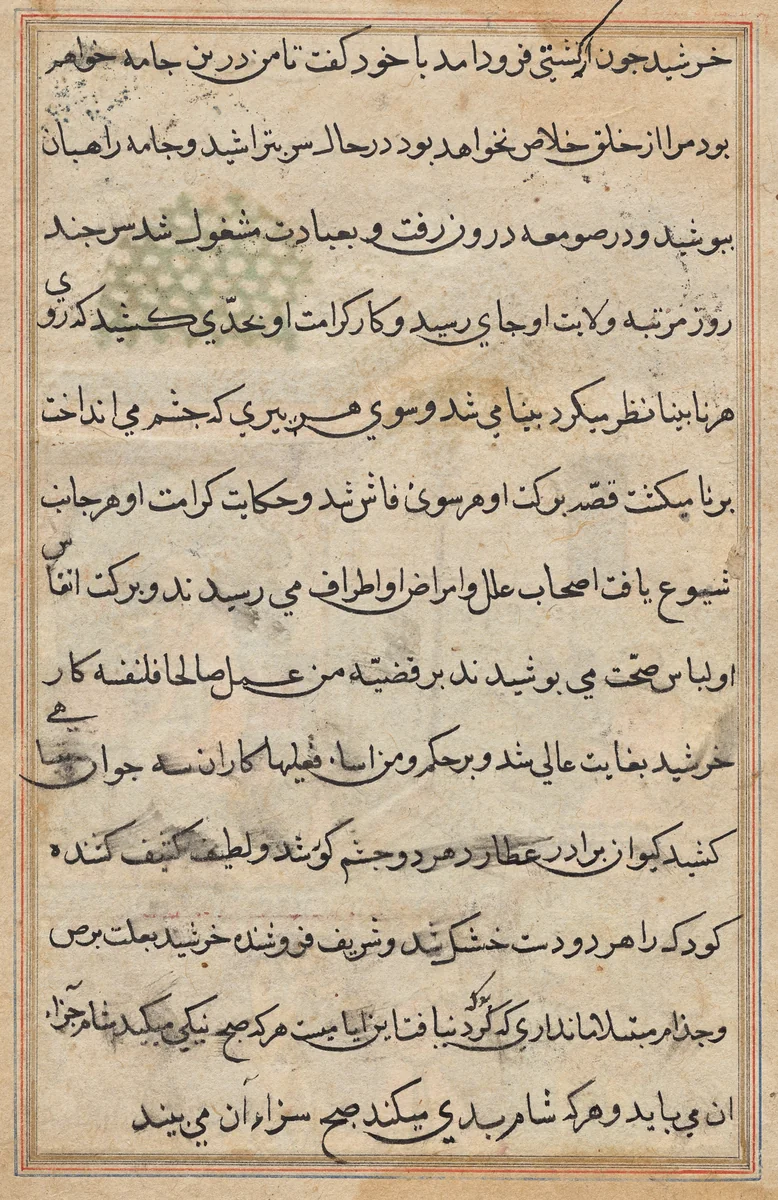 خرشید جون ازکشتی فرود امد با خود کفت تا من درین جامه خواهم
بود مرا از خلق خلاص نخواهد بود در حال سر بتراشید و جامه راهبان
ببوشید و در صومعه درون رفت و بعبادت مشغول شد سر جند
روز مرتبه ولایت او جای رسید و کار کرامت او بحدّی کشید که روی
هر نا بینا نظر میکرد بینا می شد و سوی هر پیری که جشم می انداخت
برنا میکشت قصّه برکت او هر سوی فاش شد و حکایت کرامت او هر جانب
شیوع یافت اصحاب علل و امراض او اطراف می رسیدند و برکت انفاس
او لباس صحّت می بوشیدند بر قضیّه من عمل صالحا فلنفسه کار
خرشید بغایت عالی شد و بر حکم و من اساء فعلیها کار ان سه جوان
کشید کیوان برادر عطارد هر دو جشم کور شد و لطیف کثیف کننده
کودک را هر دو دست خشک شد و شریف فروشنده خرشید بعلت برص
و جذام مبتلا ماند اری که کرد که نیافت این ایامیست هرکه صبح نیکی میکند شام جزاء
ان می باید و هرکه شام بدی میکند صبح سزاء آن می بیند